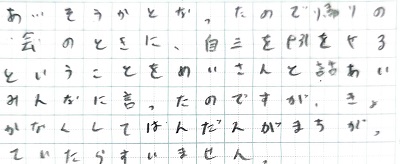 あ…そうかとなったので帰りの
会のときに、自主を代をやる
ということをめいさんと話あい
みんなに言ったのですが、きょ
かなくしてはんだんがまちがっ
ていたらすいません。